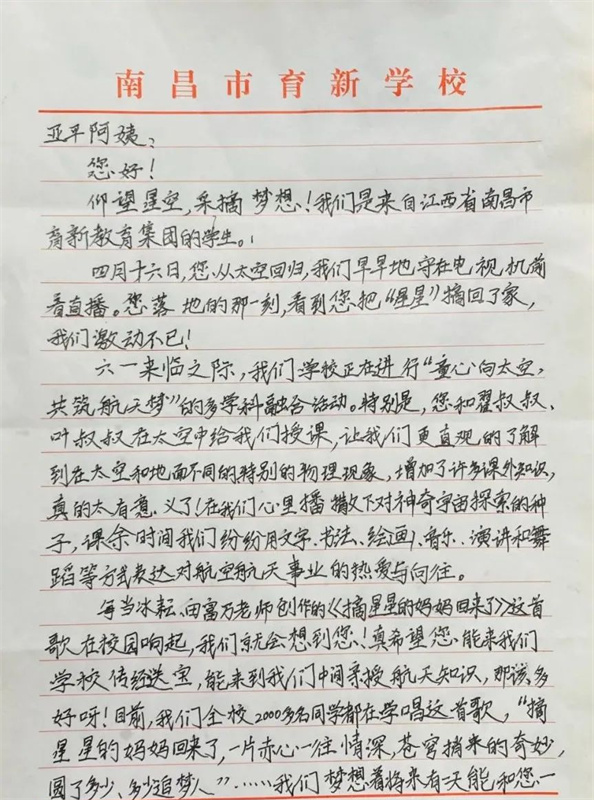 南昌市育新学校
亚平阿姨：
您好！
仰望星空，采摘梦想！我们是来自江西省南昌市
育新教育集团的学生。
四月十六日，您从太空回归，我们早早地守在电视机前
看直播。您落地的那一刻，看到您把“星星”摘回了家，
我们激动不已！
六一来临之际，我们学校正在进行“童心向太空，
共筑航天梦”的多学科融合活动。特别是，您和翟叔叔、
叶叔叔在太空中给我们授课，让我们更直观的了解
到在太空和地面不同的特别的物理现象，增加了许多课外知识，
真的太有意义了！在我们心里播撒下对神奇宇宙探索的种
子，课余时间我们纷纷用文字、书法、绘画、音乐、演讲和舞
蹈等方式表达对航空航天事业的热爱与向往。
每当冰耘、由富万老师创作的《摘星星的妈妈回来了》这首
歌在校园响起，我们就会想到您！真希望您能来我们
学校传经送宝，能来到我们中间亲授航天知识，那该多
好呀！目前，我们全校2000多名同学都在学唱这首歌，“摘
星星的妈妈回来了，一片赤心一往情深，苍穹捎来的奇妙，
圆了多少、多少追梦人”……我们梦想着将来有一天能和您一